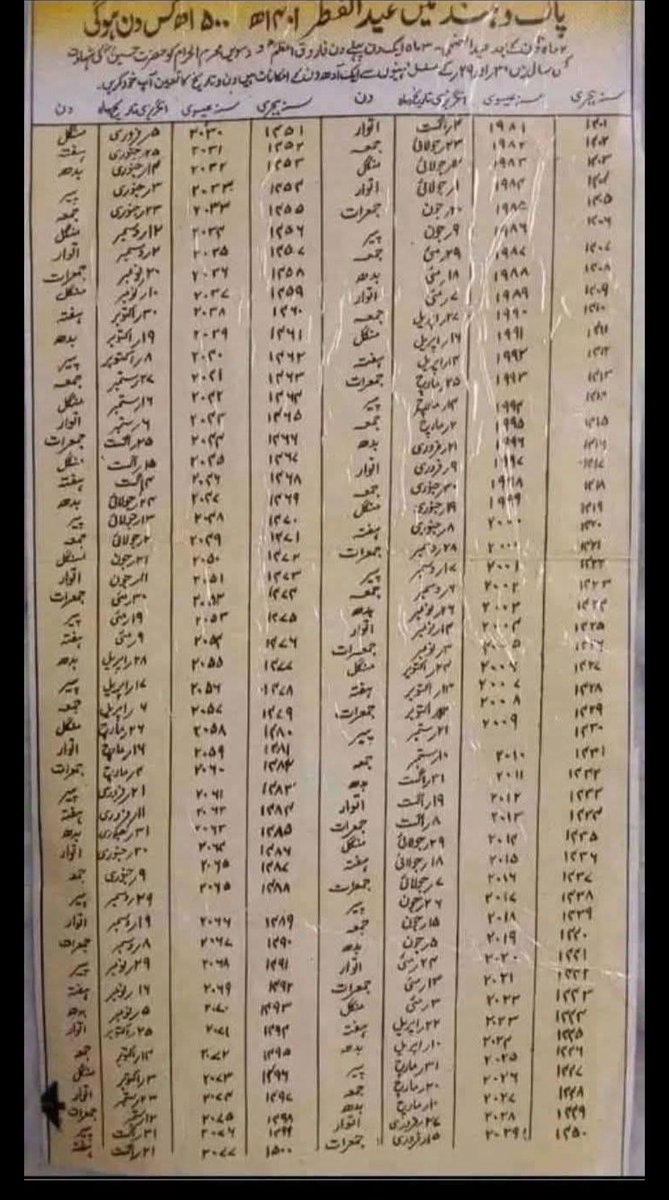 پاک و ہند میں عیدالفطر ۱۴۰۱ھ ۱۵۰۰ھ کس دن ہوگی
کے بعد عیدالاضحیٰ ۳ ماہ ایک دن پہلے دن فاروق اعظمؓ و دسویں محرم الحرام کو حضرت حسینؓ کی شہادت
سال میں ۳۰ اور ۲۹ کے مسلسل مہینوں سے ایک آدھ دن کے امکانات ہیں دن و تاریخ کا تعین آپ خود کریں۔
سنہ ہجری سنہ عیسوی انگریزی تاریخ/ماہ دن سنہ ہجری سنہ عیسوی انگریزی تاریخ/ماہ دن
۱۴۰۱ ۱۹۸۱ ۲؍اگست اتوار ۱۴۵۱ ۲۰۳۰ ۵؍فروری منگل
۱۴۰۲ ۱۹۸۲ ۲۳؍جولائی جمعہ ۱۴۵۲ ۲۰۳۱ ۲۵؍جنوری ہفتہ
۱۴۰۳ ۱۹۸۳ جولائی منگل ۱۴۵۳ ۲۰۳۲ ۱۴؍جنوری بدھ
۱۴۰۴ ۱۹۸۴ ۱؍جولائی اتوار ۱۴۵۴ ۲۰۳۳ ۳؍جنوری پیر
۱۴۰۵ ۱۹۸۵ ۲۰؍جون جمعرات ۱۴۵۵ ۲۰۳۳ ۲۳؍جنوری جمعہ
۱۴۰۶ ۱۹۸۶ ۹؍جون پیر ۱۴۵۶ ۲۰۳۴ ۱۲؍دسمبر منگل
۱۴۰۷ ۱۹۸۷ ۲۹؍مئی جمعہ ۱۴۵۷ ۲۰۳۵ ۲؍دسمبر اتوار
۱۴۰۸ ۱۹۸۸ ۱۸؍مئی بدھ ۱۴۵۸ ۲۰۳۶ ۲۰؍نومبر جمعرات
۱۴۰۹ ۱۹۸۹ ۷؍مئی اتوار ۱۴۵۹ ۲۰۳۷ ۱۰؍نومبر منگل
۱۴۱۰ ۱۹۹۰ ۲۷؍اپریل جمعہ ۱۴۶۰ ۲۰۳۸ ۳۰؍اکتوبر ہفتہ
۱۴۱۱ ۱۹۹۱ ۱۶؍اپریل منگل ۱۴۶۱ ۲۰۳۹ ۱۹؍اکتوبر بدھ
۱۴۱۲ ۱۹۹۲ اپریل ہفتہ ۱۴۶۲ ۲۰۴۰ ۸؍اکتوبر پیر
۱۴۱۳ ۱۹۹۳ ۲۵؍مارچ جمعرات ۱۴۶۳ ۲۰۴۱ ۲۷؍ستمبر جمعہ
۱۴۱۴ ۱۹۹۴ ۱۴؍مارچ پیر ۱۴۶۴ ۲۰۴۲ ۱۶؍ستمبر منگل
۱۴۱۵ ۱۹۹۵ مارچ جمعہ ۱۴۶۵ ۲۰۴۳ ۶؍ستمبر اتوار
۱۴۱۶ ۱۹۹۶ ۲۱؍فروری بدھ ۱۴۶۶ ۲۰۴۴ ۲۵؍اگست جمعرات
۱۴۱۷ ۱۹۹۷ ۹؍فروری اتوار ۱۴۶۷ ۲۰۴۵ ۱۵؍اگست منگل
۱۴۱۸ ۱۹۹۸ ۳۰؍جنوری جمعہ ۱۴۶۸ ۲۰۴۶ ۴؍اگست ہفتہ
۱۴۱۹ ۱۹۹۹ ۱۹؍جنوری منگل ۱۴۶۹ ۲۰۴۷ ۲۴؍جولائی بدھ
۱۴۲۰ ۲۰۰۰ ۸؍جنوری ہفتہ ۱۴۷۰ ۲۰۴۸ ۱۳؍جولائی پیر
۱۴۲۱ ۲۰۰۰ ۲۸؍دسمبر جمعرات ۱۴۷۱ ۲۰۴۹ ۲؍جولائی جمعہ
۱۴۲۲ ۲۰۰۱ ۱۷؍دسمبر پیر ۱۴۷۲ ۲۰۵۰ ۲۱؍جون منگل
۱۴۲۳ ۲۰۰۲ ۶؍دسمبر جمعہ ۱۴۷۳ ۲۰۵۱ ۱۱؍جون اتوار
۱۴۲۴ ۲۰۰۳ ۲۶؍نومبر بدھ ۱۴۷۴ ۲۰۵۲ ۳۰؍مئی جمعرات
۱۴۲۵ ۲۰۰۴ ۱۴؍نومبر اتوار ۱۴۷۵ ۲۰۵۳ ۱۹؍مئی پیر
۱۴۲۶ ۲۰۰۵ ۳؍نومبر جمعرات ۱۴۷۶ ۲۰۵۴ ۹؍مئی ہفتہ
۱۴۲۷ ۲۰۰۶ ۲۴؍اکتوبر منگل ۱۴۷۷ ۲۰۵۵ ۲۸؍اپریل بدھ
۱۴۲۸ ۲۰۰۷ ۱۳؍اکتوبر ہفتہ ۱۴۷۸ ۲۰۵۶ ۱۷؍اپریل پیر
۱۴۲۹ ۲۰۰۸ اکتوبر جمعرات ۱۴۷۹ ۲۰۵۷ ۶؍اپریل جمعہ
۱۴۳۰ ۲۰۰۹ ۲۱؍ستمبر پیر ۱۴۸۰ ۲۰۵۸ ۲۶؍مارچ منگل
۱۴۳۱ ۲۰۱۰ ۱۰؍ستمبر جمعہ ۱۴۸۱ ۲۰۵۹ ۱۶؍مارچ اتوار
۱۴۳۲ ۲۰۱۱ ۳۱؍اگست بدھ ۱۴۸۲ ۲۰۶۰ ۴؍مارچ جمعرات
۱۴۳۳ ۲۰۱۲ ۱۹؍اگست اتوار ۱۴۸۳ ۲۰۶۱ ۲۱؍فروری پیر
۱۴۳۴ ۲۰۱۳ ۸؍اگست جمعرات ۱۴۸۴ ۲۰۶۲ ۱۱؍فروری ہفتہ
۱۴۳۵ ۲۰۱۴ ۲۹؍جولائی منگل ۱۴۸۵ ۲۰۶۳ ۳۱؍جنوری بدھ
۱۴۳۶ ۲۰۱۵ ۱۸؍جولائی ہفتہ ۱۴۸۶ ۲۰۶۴ ۲۰؍جنوری اتوار
۱۴۳۷ ۲۰۱۶ ۷؍جولائی جمعرات ۱۴۸۷ ۲۰۶۵ ۹؍جنوری جمعہ
۱۴۳۸ ۲۰۱۷ ۲۶؍جون پیر ۱۴۸۸ ۲۰۶۵ ۲۹؍دسمبر پیر
۱۴۳۹ ۲۰۱۸ ۱۵؍جون جمعہ ۱۴۸۹ ۲۰۶۶ ۱۹؍دسمبر اتوار
۱۴۴۰ ۲۰۱۹ ۵؍جون بدھ ۱۴۹۰ ۲۰۶۷ ۸؍دسمبر جمعرات
۱۴۴۱ ۲۰۲۰ ۲۴؍مئی اتوار ۱۴۹۱ ۲۰۶۸ ۲۹؍نومبر پیر
۱۴۴۲ ۲۰۲۱ ۱۳؍مئی جمعرات ۱۴۹۲ ۲۰۶۹ ۱۶؍نومبر ہفتہ
۱۴۴۳ ۲۰۲۲ ۳؍مئی منگل ۱۴۹۳ ۲۰۷۰ ۵؍نومبر بدھ
۱۴۴۴ ۲۰۲۳ ۲۲؍اپریل ہفتہ ۱۴۹۴ ۲۰۷۱ ۲۵؍اکتوبر اتوار
۱۴۴۵ ۲۰۲۴ ۱۰؍اپریل بدھ ۱۴۹۵ ۲۰۷۲ ۱۴؍اکتوبر جمعہ
۱۴۴۶ ۲۰۲۵ ۳۱؍مارچ پیر ۱۴۹۶ ۲۰۷۳ ۳؍اکتوبر منگل
۱۴۴۷ ۲۰۲۶ ۲۰؍مارچ جمعہ ۱۴۹۷ ۲۰۷۴ ۲۳؍ستمبر اتوار
۱۴۴۸ ۲۰۲۷ ۱۰؍مارچ بدھ ۱۴۹۸ ۲۰۷۵ ۱۲؍ستمبر جمعرات
۱۴۴۹ ۲۰۲۸ ۲۷؍فروری اتوار ۱۴۹۹ ۲۰۷۶ ۳۱؍اگست پیر
۱۴۵۰ ۲۰۲۹ ۱۵؍فروری جمعرات ۱۵۰۰ ۲۰۷۷ ۲۱؍اگست ہفتہ